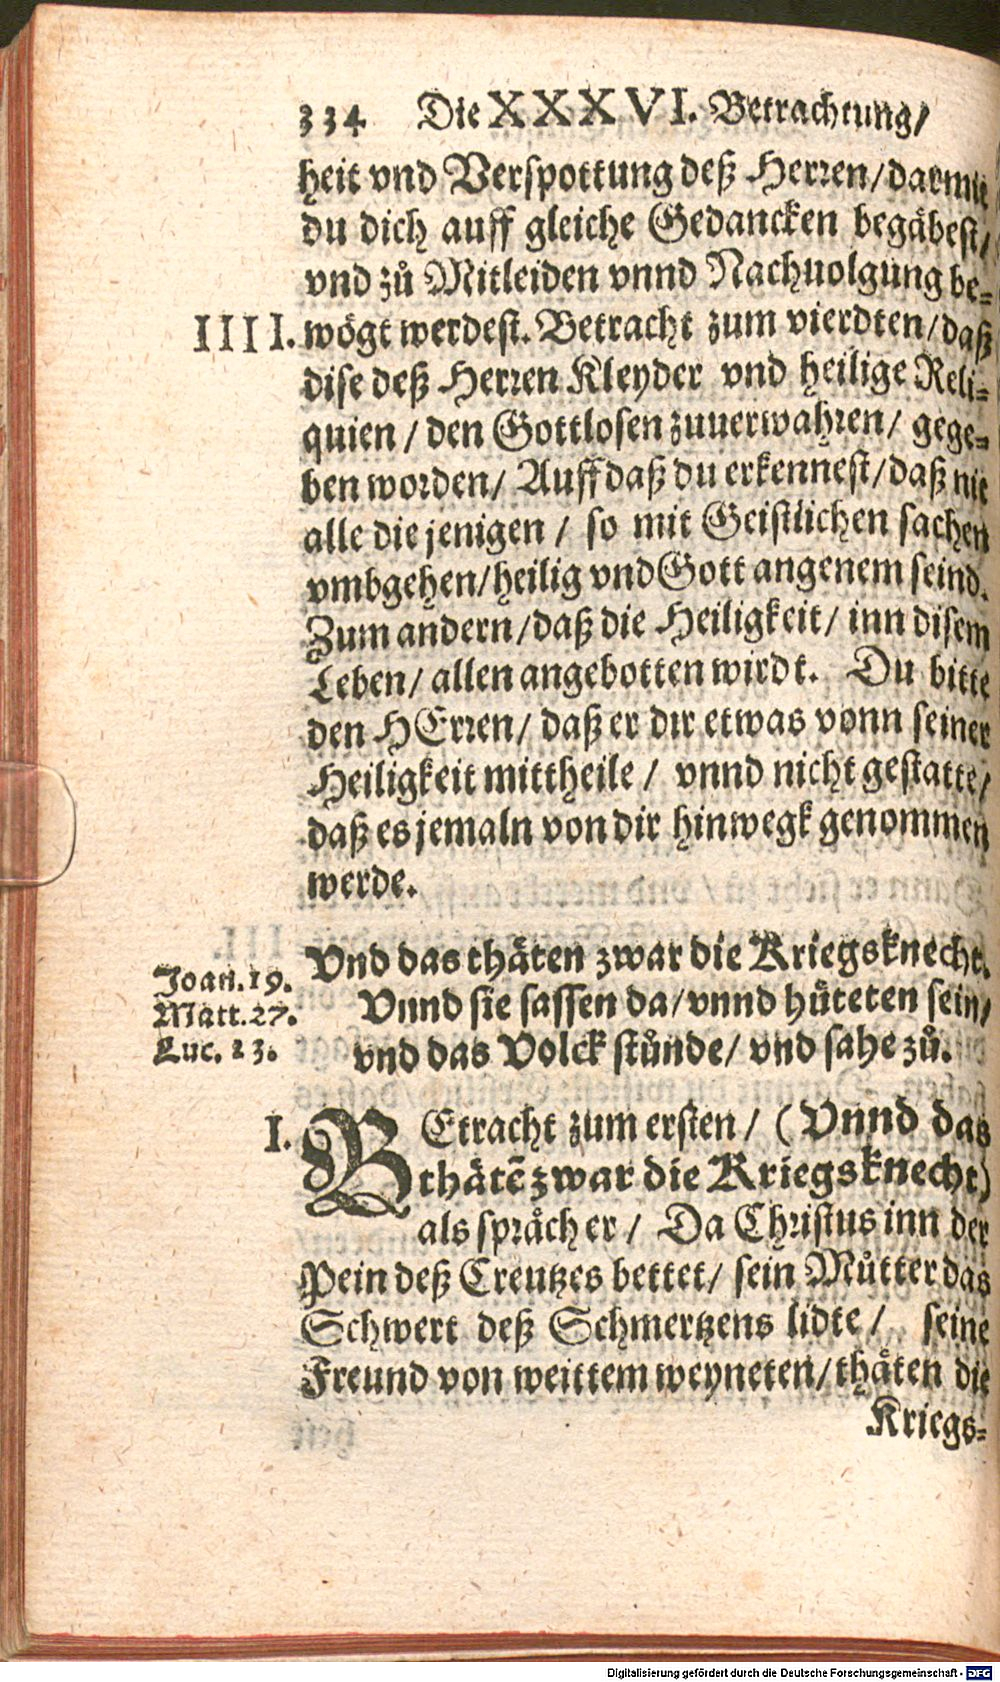 334 Die XXXVI. Betrachtung/
heit vnd Verspottung deß Herren/ darmit
du dich auff gleiche Gedancken begäbest/
vnd zů Mitleiden vnnd Nachuolgung be-
IIII. wögt werdest. Betracht zum vierdten/ daß
dise deß Herren Kleyder vnd heilige Reli-
quien/ den Gottlosen zuuerwahren/ gege-
ben worden/ Auff daß du erkennest/ daß nit
alle die jenigen/ so mit Geistlichen sachen
vmbgehen/ heilig vnd Gott angenem seind.
Zum andern/ daß die Heiligkeit/ inn disem
Leben/ allen angebotten wirdt. Du bitte
den HErren/ daß er dir etwas vonn seiner
Heiligkeit mittheile/ vnnd nicht gestatte/
daß es jemaln von dir hinwegk genommen
werde.
Vnd das thäten zwar die Kriegsknecht.
Joan. 19.
Vnnd sie sassen da/ vnnd hüteten sein/
Matt. 27.
vnd das Volck stůnde/ vnd sahe zů.
Luc. 23.
I. BEtracht zum ersten/ (Vnnd das
thätẽ zwar die Kriegsknecht)
als spräch er/ Da Christus inn der
Pein deß Creutzes bettet/ sein Můtter das
Schwert deß Schmertzens lidte/ seine
Freund von weittem weyneten/ thäten die
Kriegs-
Digitalisierung gefördert durch die Deutsche Forschungsgemeinschaft - DFG